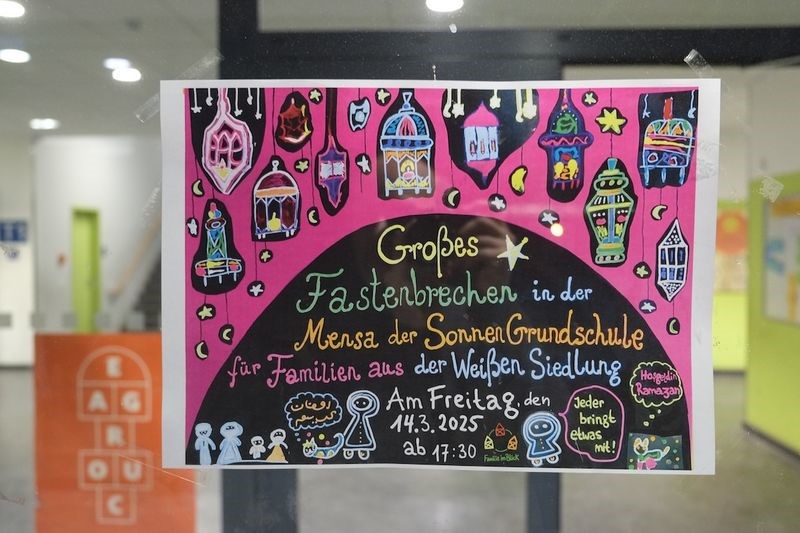 Großes
Fastenbrechen in der
Mensa der SonnenGrundschule
für Familien aus der Weißen Siedlung
Am Freitag, den
14.3.2025
ab 17:30
Jeder
bringt
etwas
mit!
Hoşgeldin
Ramazan
Familie im Blick
E
A G R
R
O U
C